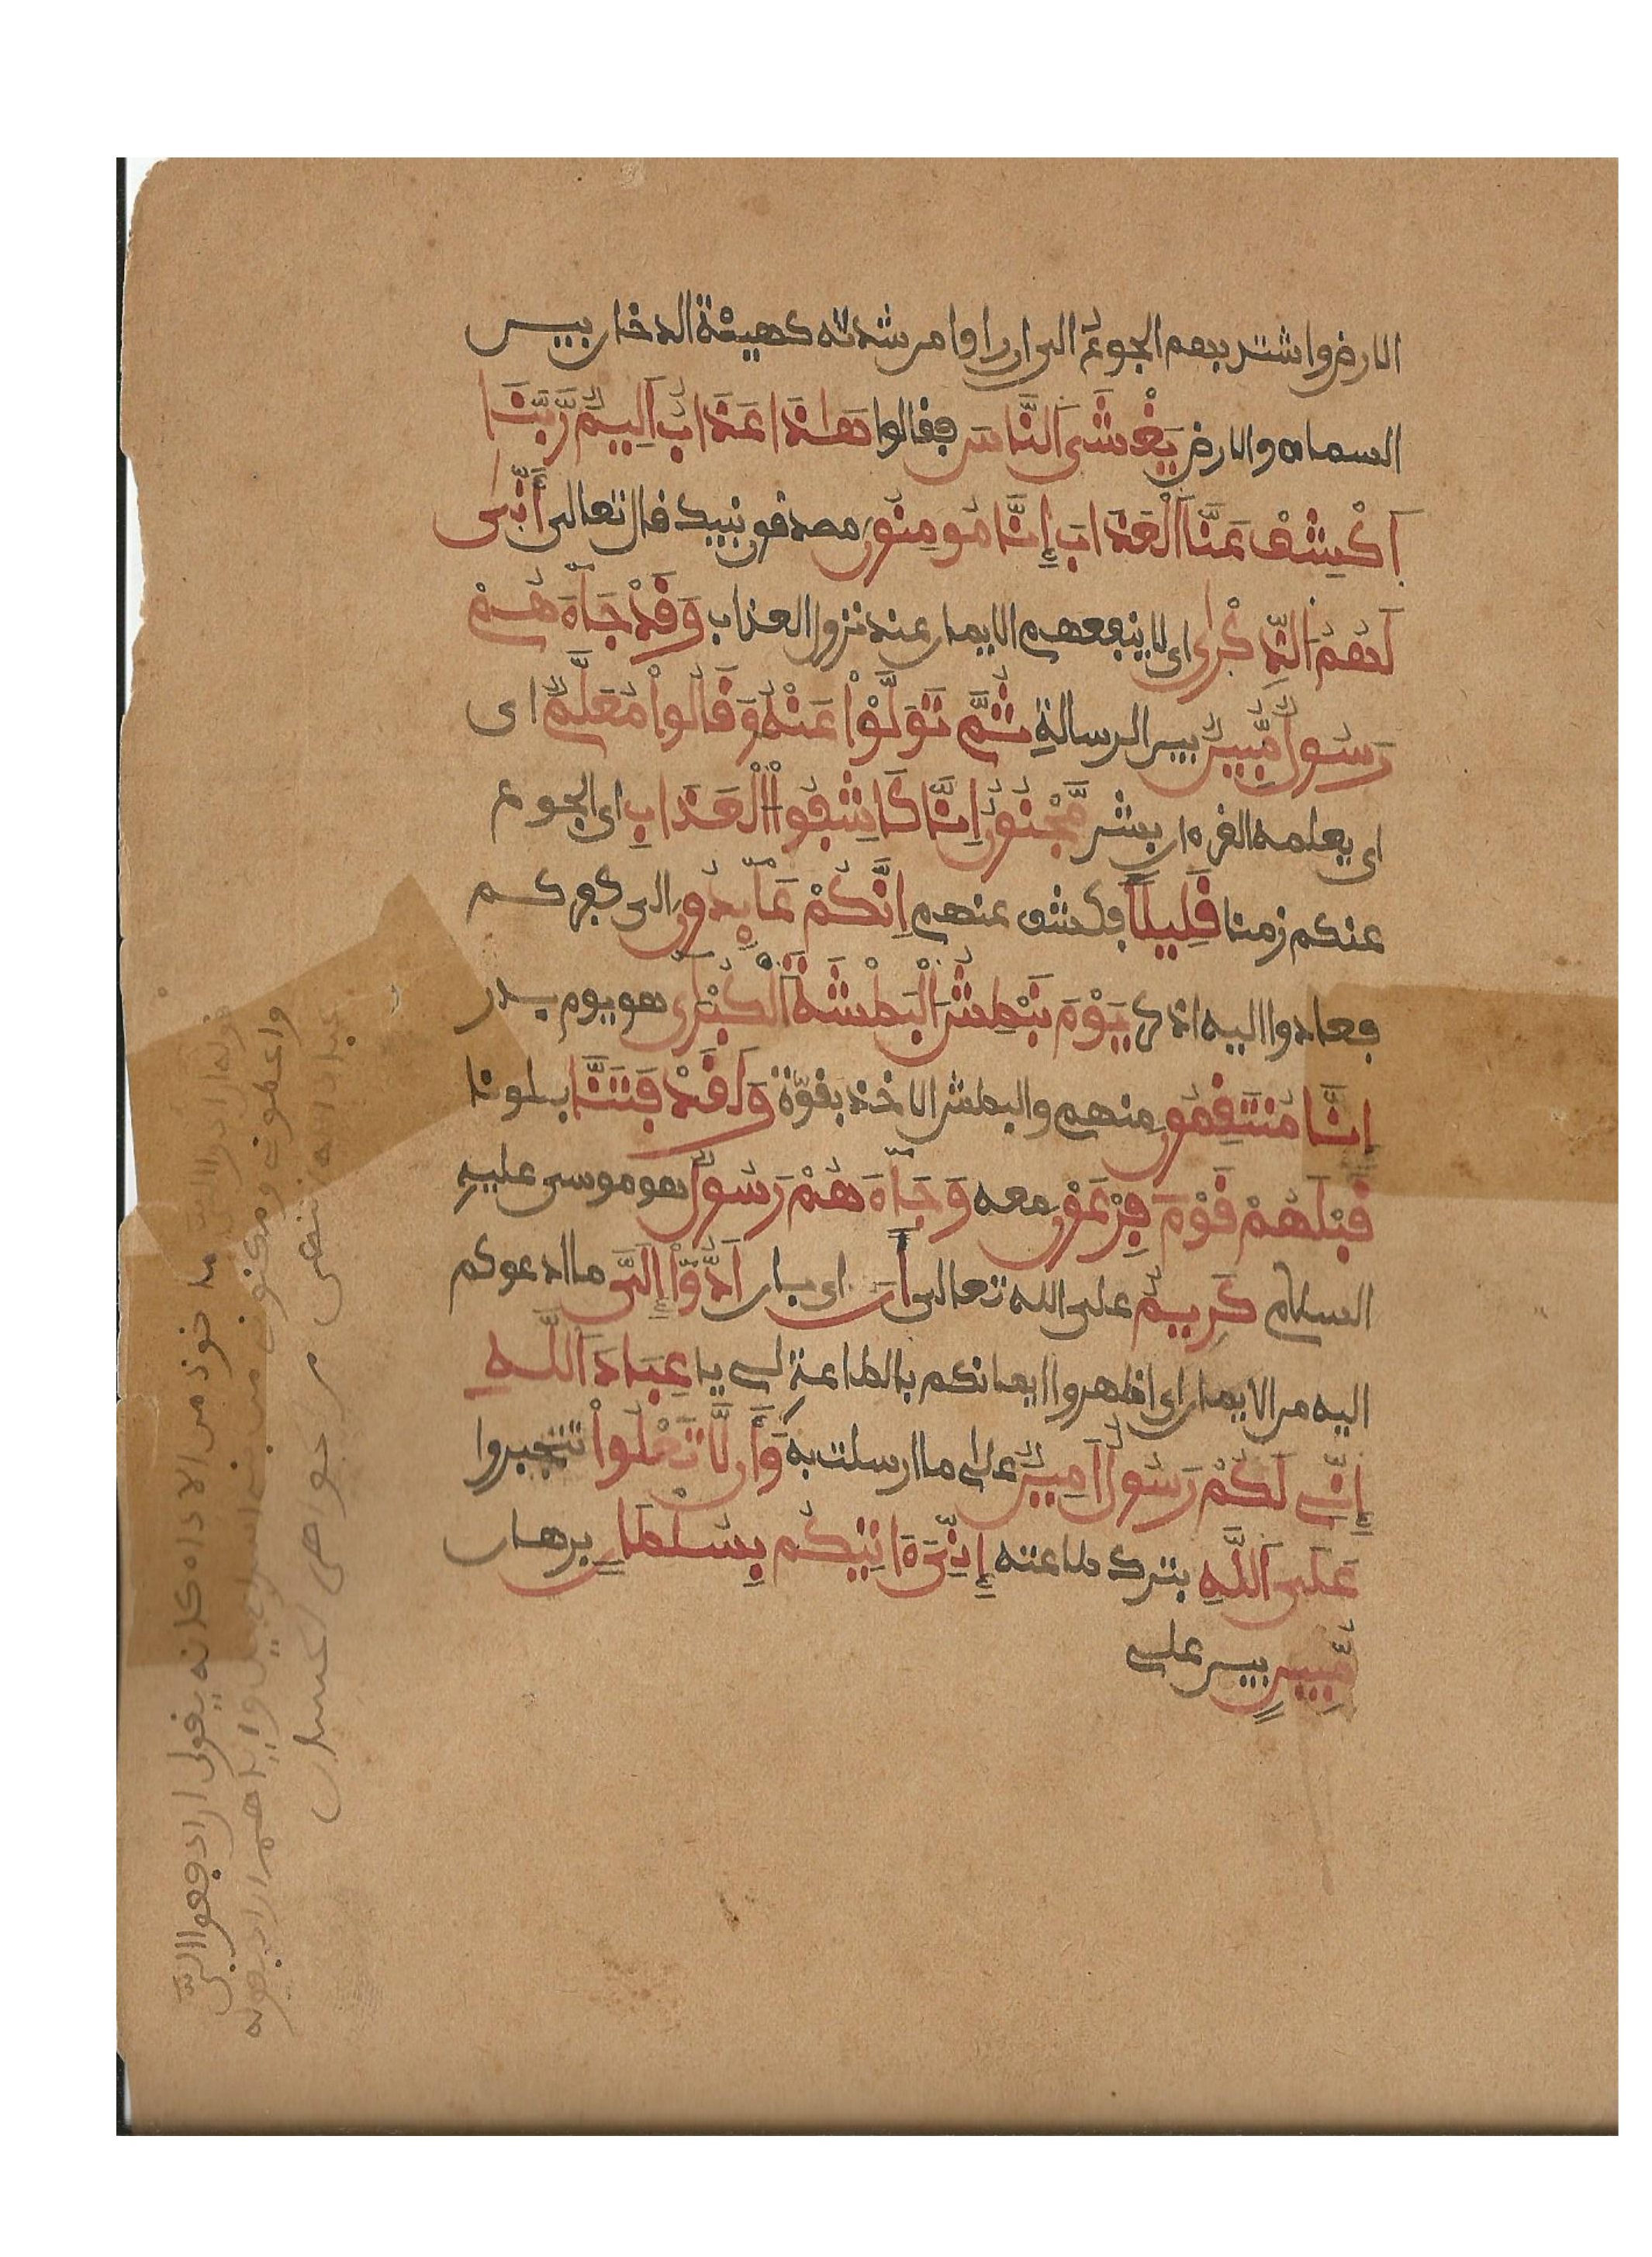 الارض واشتد بهم الجوع الى ان راوا من شدته كهيئة الدخان بين
السماء والارض يَغْشَى اَلنَّاسَ فقالوا هَاذَا عَذَابٌ اَلِيمٌ رَّبَّنَا
اَكْشِفْ عَنَّا اَلْعَذَابَ إِنَّا مُومِنُونَ مصدقون نبيك قال تعالى أَنَّى
لَهُمُ الذِّكْرَى اى لا ينفعهم الايمان عند نزول العذاب وَقَدْ جَآءَهُمْ
رَسُولٌ مُّبِينٌ بين الرسالةِ ثُمَّ تَوَلَّوْاْ عَنْهُ وَقَالُواْ مُعَلَّمٌ اى
اى يعلمه القرءان بشر مَّجْنُونٌ اِنَّا كَاشِفُواْ اْلْعَذَابِ اى الجوع
عنكم زمنا قَلِيلًا فكشف عنهم اِنَّكُمْ عَآيِدُونَ الى كفركم
فعادوا اليه اذكر يَوْمَ نَبْطِشُ اَلْبَطْشَةَ اَلْكُبْرَى هو يوم بدر
اِنَّا مُنتَقِمُونَ منهم والبطش الاخذ بقوّة وَلَقَدْ فَتَنَّا بلونا
قَبْلَهُمْ قَوْمَ فِرْعَوْنَ معه وَجَآءَهُمْ رَسُولٌ هو موسى عليهِ
السلام كَرِيمٌ على الله تعالى أَنَ اى بان اَدُّوٓاْ إِلَىَّ ما ادعوكم
اليه من الايمان اى اظهروا ايمانكم بالطاعةِ لى يا عِبَادَ اَللَّهِ
إِنِّى لَكُمْ رَسُولٌ اَمِينٌ على ما ارسلت به وَأَن لَّا تَعْلُواْ تتجبروا
عَلَى اَللَّهِ بترك طاعته إِنِّىَ ءَاتِيكُم بِسُلْطَانٍ برهان
مُّبِينٍ بين على
ماخوذ من الاداء كانه يقول ان ادفعوا الىَّ